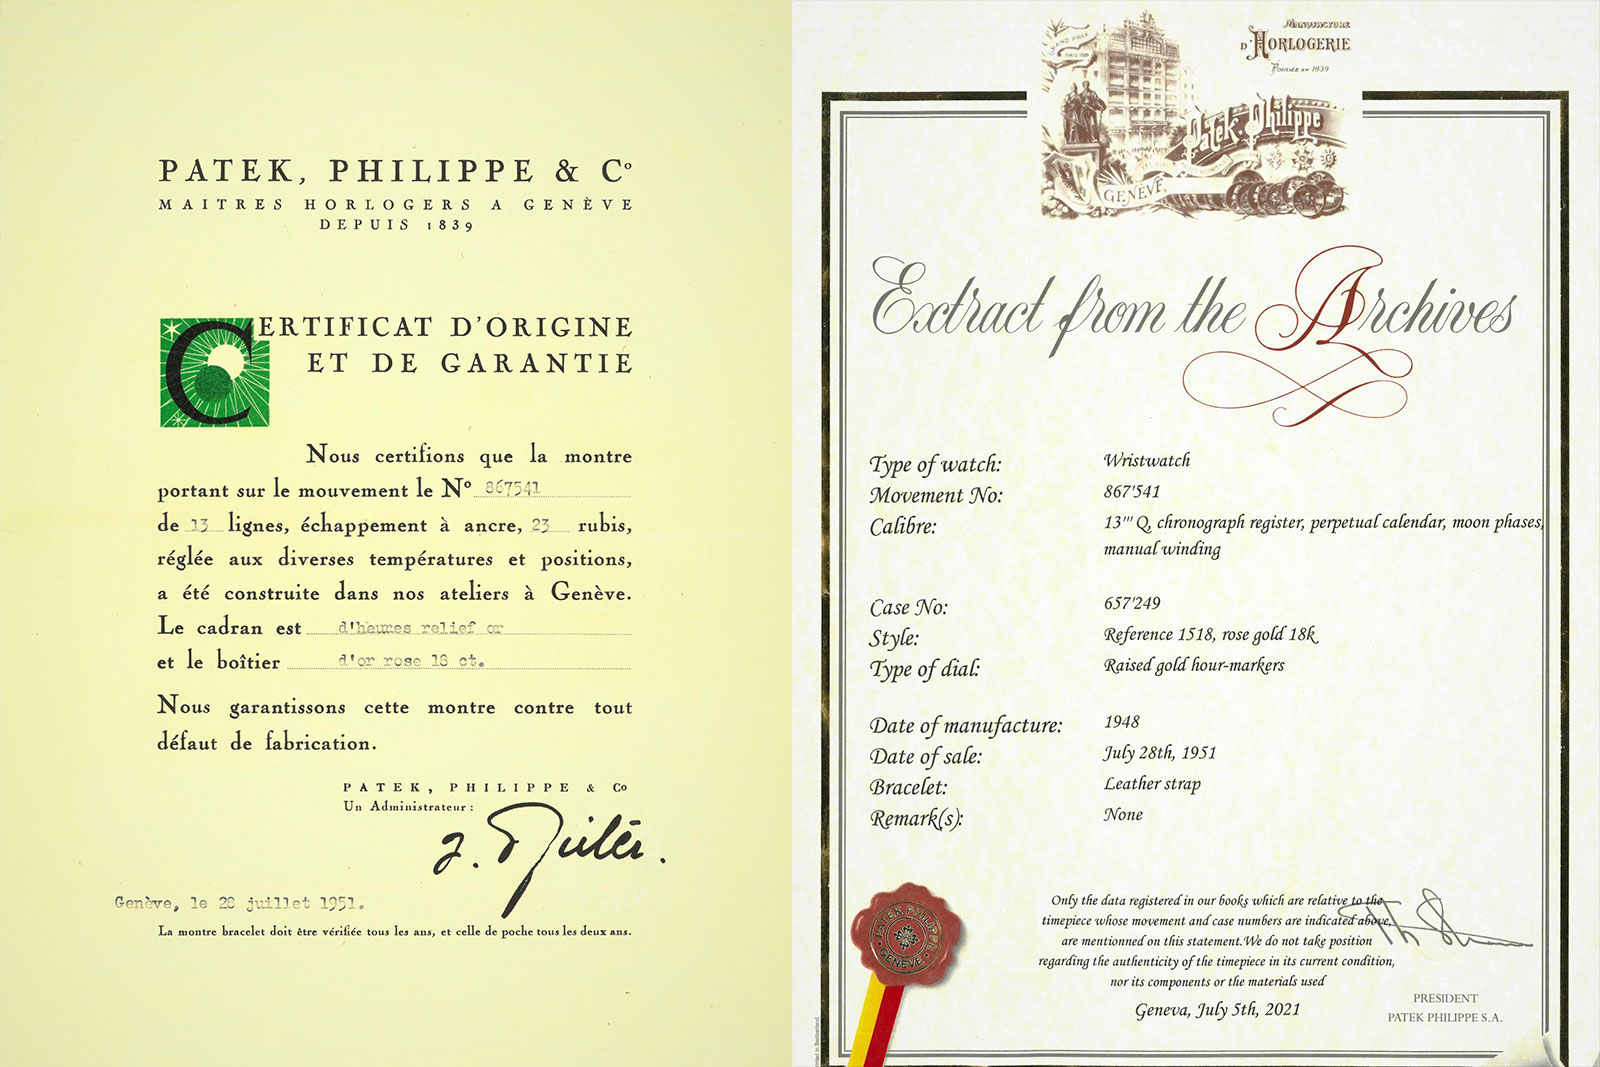 PATEK, PHILIPPE & Cº
MAITRES HORLOGERS A GENÈVE
DEPUIS 1839
CERTIFICAT D'ORIGINE
ET DE GARANTIE
Nous certifions que la montre
portant sur le mouvement le Nº 867541
de 13 lignes, échappement à ancre, 23 rubis,
réglée aux diverses températures et positions,
a été construite dans nos ateliers à Genève.
Le cadran est d'heures relief or
et le boîtier d'or rose 18 ct.
Nous garantissons cette montre contre tout
défaut de fabrication.
PATEK, PHILIPPE & Co
Un Administrateur :
Genève, le 28 juillet 1951.
La montre bracelet doit être vérifiée tous les ans, et celle de poche tous les deux ans.
MANUFACTURE
D'HORLOGERIE
FONDÉE EN 1839
GRAND PRIX
Patek. Philippe
GENÈVE
Extract from the Archives
Type of watch: Wristwatch
Movement No: 867'541
Calibre: 13''' Q, chronograph register, perpetual calendar, moon phases,
manual winding
Case No: 657'249
Style: Reference 1518, rose gold 18k
Type of dial: Raised gold hour-markers
Date of manufacture: 1948
Date of sale: July 28th, 1951
Bracelet: Leather strap
Remark(s): None
Only the data registered in our books which are relative to the
timepiece whose movement and case numbers are indicated above,
are mentionned on this statement. We do not take position
regarding the authenticity of the timepiece in its current condition,
nor its components or the materials used
Geneva, July 5th, 2021
PRESIDENT
PATEK PHILIPPE S.A.
PATEK PHILIPPE
GENEVE
Printed in Switzerland